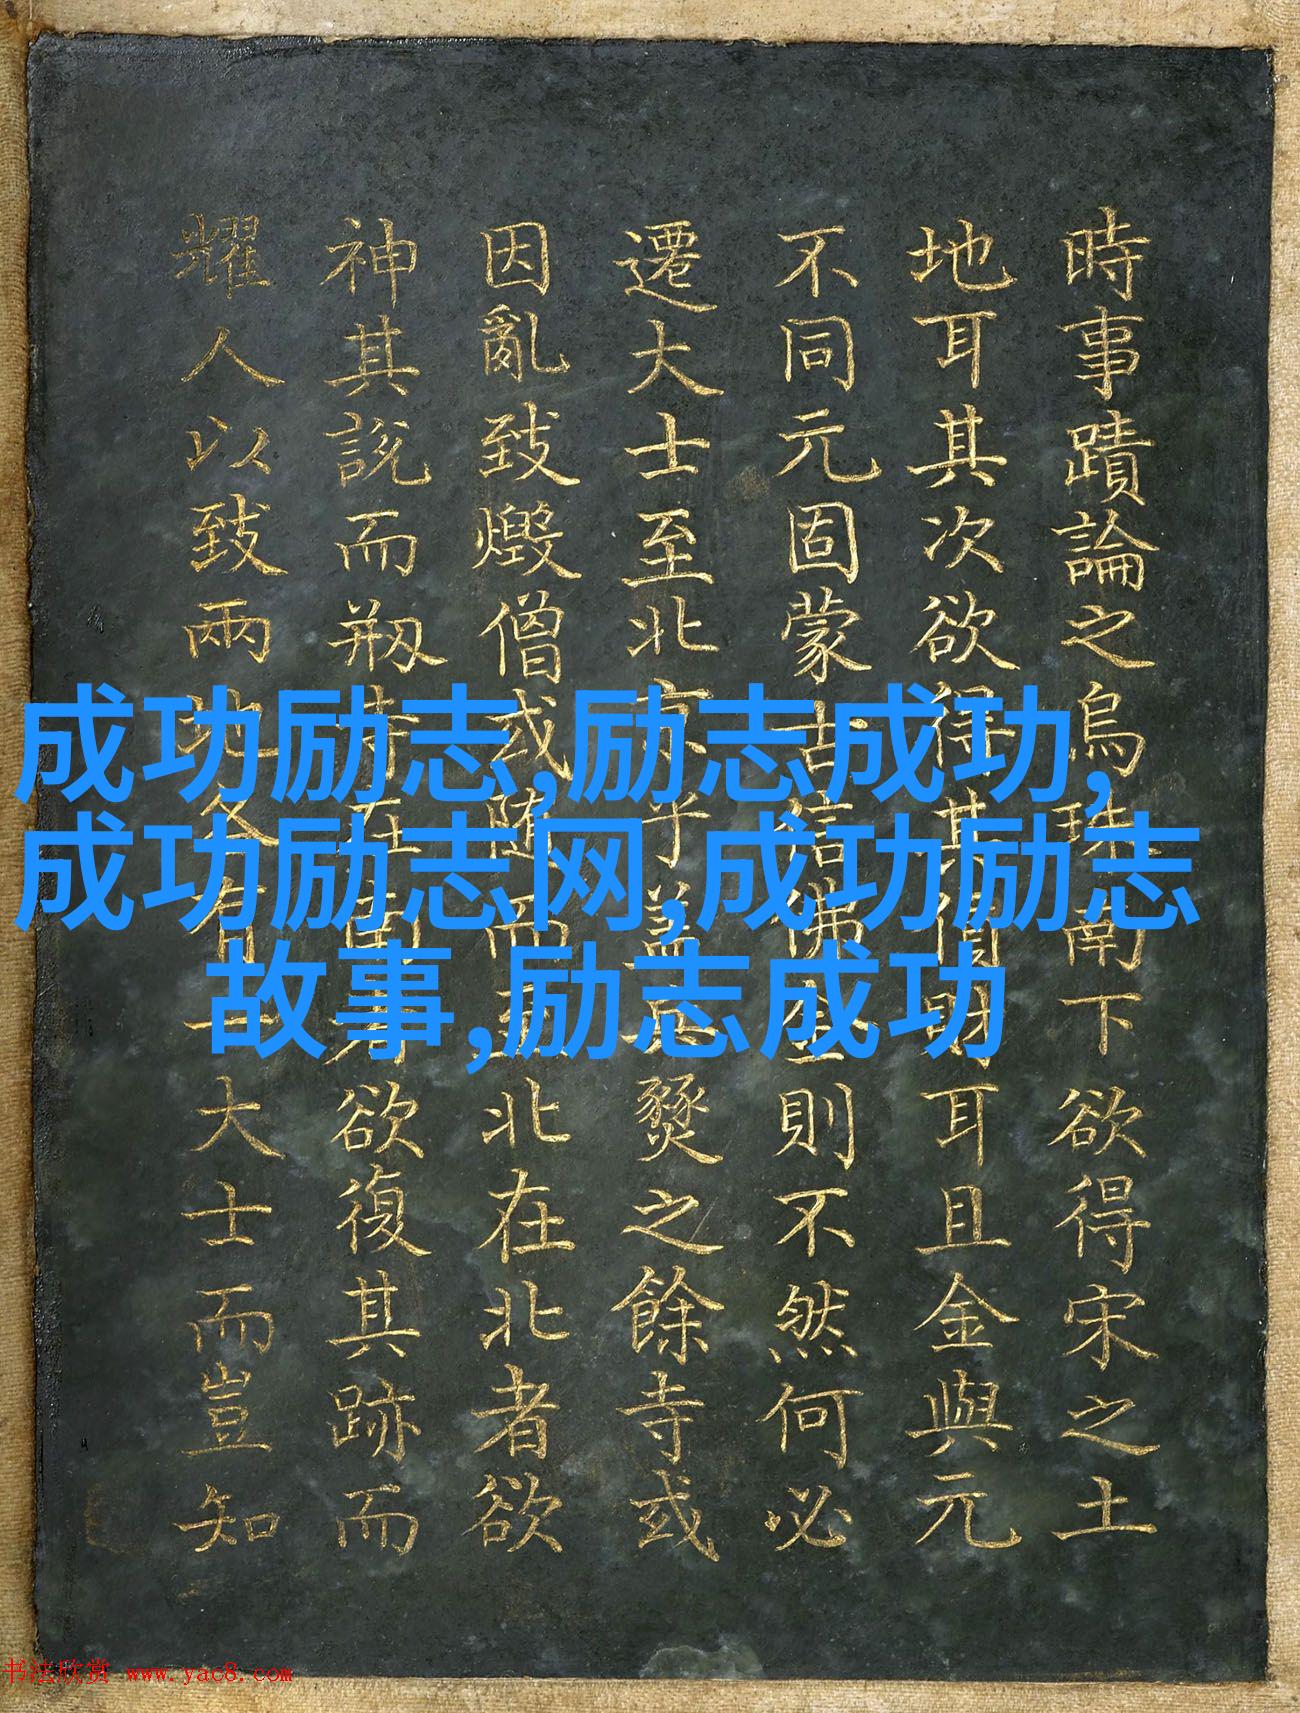 時事蹟論之烏珠南下欲得宋之土
地耳其次欲得其財耳且金與元
不同元固蒙古信佛金則不然何必
遷大士至北京乎蓋兵燹之餘寺或
因亂致燬僧或隨而至北在北者欲
神其說而剏在南者欲復其跡而
耀人以致兩地各有一大士而豈知
成功励志,励志成功,
成功励志网,成功励志
故事,励志成功
书法欣赏 www.yac8.com